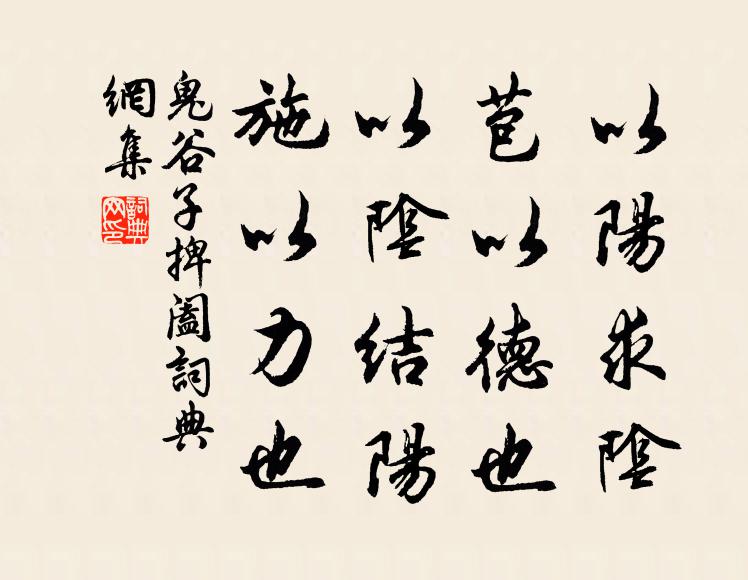 以陽求陰
苞以德也
以陰結陽
施以力也
鬼谷子捭闔詞典
網集
詞典
网印